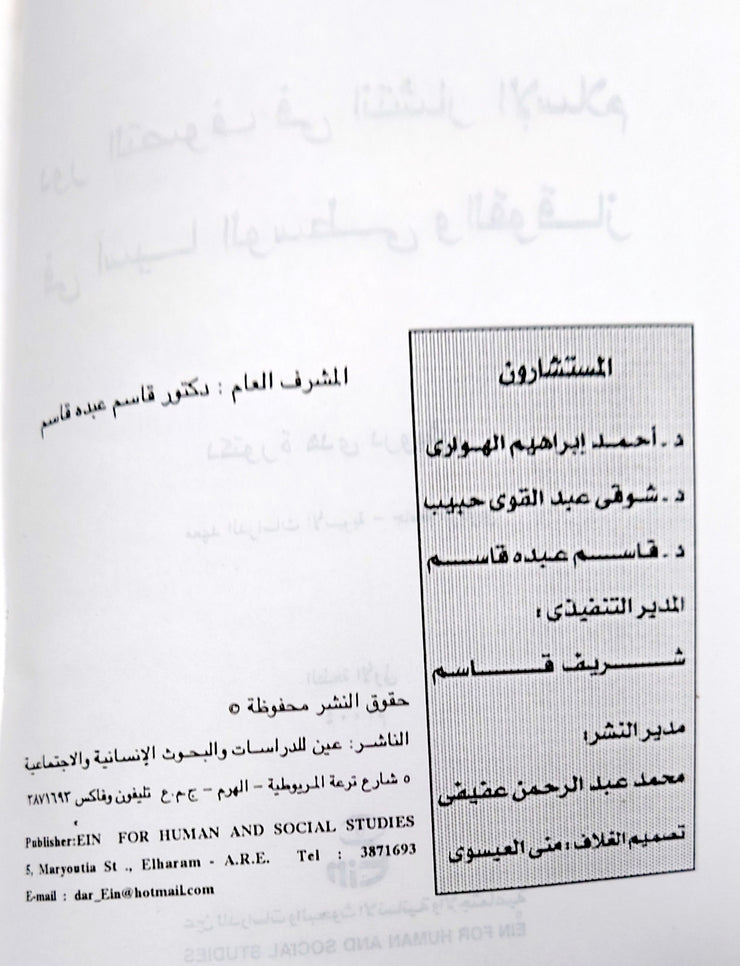 المشرف العام : دكتور قاسم عبده قاسم
المستشارون
د. أحمد إبراهيم الهوارى
د. شوقى عبد القوى حبيب
د. قاسم عبده قاسم
المدير التنفيذى :
شريف قاسم
مدير النشر:
محمد عبد الرحمن عفيفى
تصميم الغلاف : منى العيسوى
حقوق النشر محفوظة ©
الناشر: عين للدراسات والبحوث الإنسانية والاجتماعية
٥ شارع ترعة المريوطية - الهرم - ج.م.ع تليفون وفاكس ٣٨٧١٦٩٣
Publisher:EIN FOR HUMAN AND SOCIAL STUDIES
5, Maryoutia St ., Elharam - A.R.E. Tel : 3871693
E-mail : dar_Ein@hotmail.com